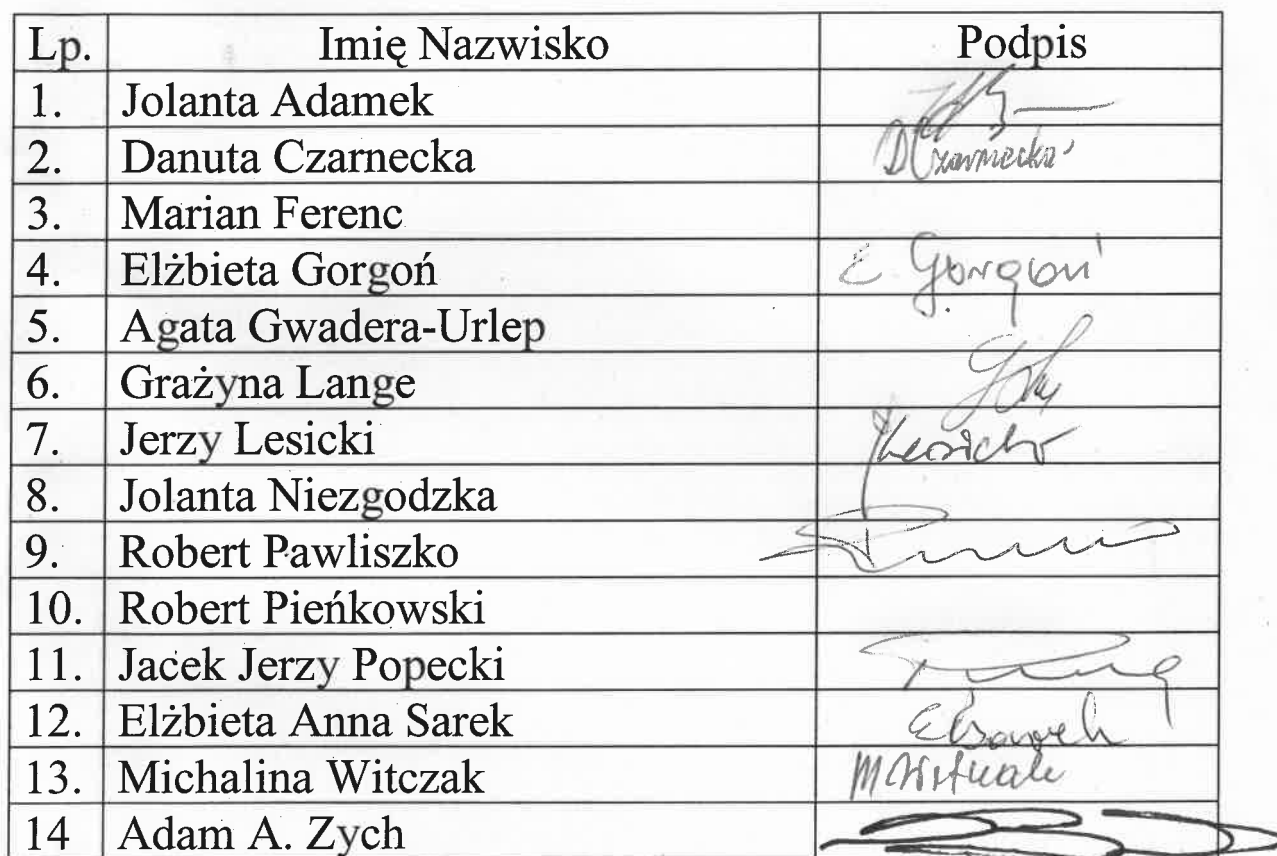 Lp. Imię Nazwisko Podpis
1. Jolanta Adamek
2. Danuta Czarnecka DCzarnecka
3. Marian Ferenc
4. Elżbieta Gorgoń E Gorgoń
5. Agata Gwadera-Urlep
6. Grażyna Lange
7. Jerzy Lesicki JLesicki
8. Jolanta Niezgodzka
9. Robert Pawliszko
10. Robert Pieńkowski
11. Jacek Jerzy Popecki
12. Elżbieta Anna Sarek ESarek
13. Michalina Witczak MWitczak
14 Adam A. Zych